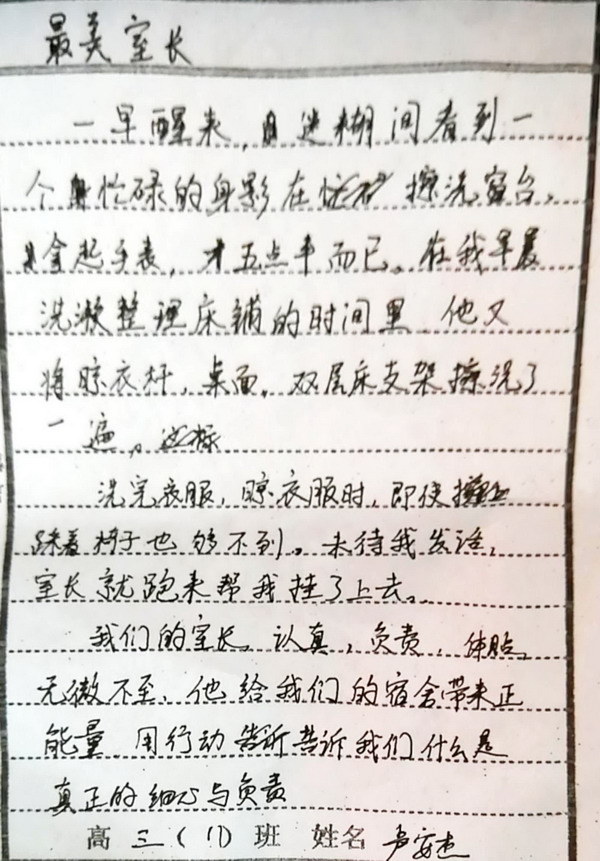 最美室长
一早醒来,迷糊间看到一
个忙碌的身影在擦洗窗台,
拿起手表,才五点半而已。在我早晨
洗漱整理床铺的时间里,他又
将晾衣杆,桌面,双层床支架擦洗了
一遍,
洗完衣服,晾衣服时,即使
踩着椅子也够不到。未待我发话,
室长就跑来帮我挂了上去。
我们的室长,认真,负责,体贴,
无微不至,他给我们的宿舍带来正
能量,用行动告诉告诉我们什么是
真正的细心与负责
高三(11)班 姓名 卢安杰